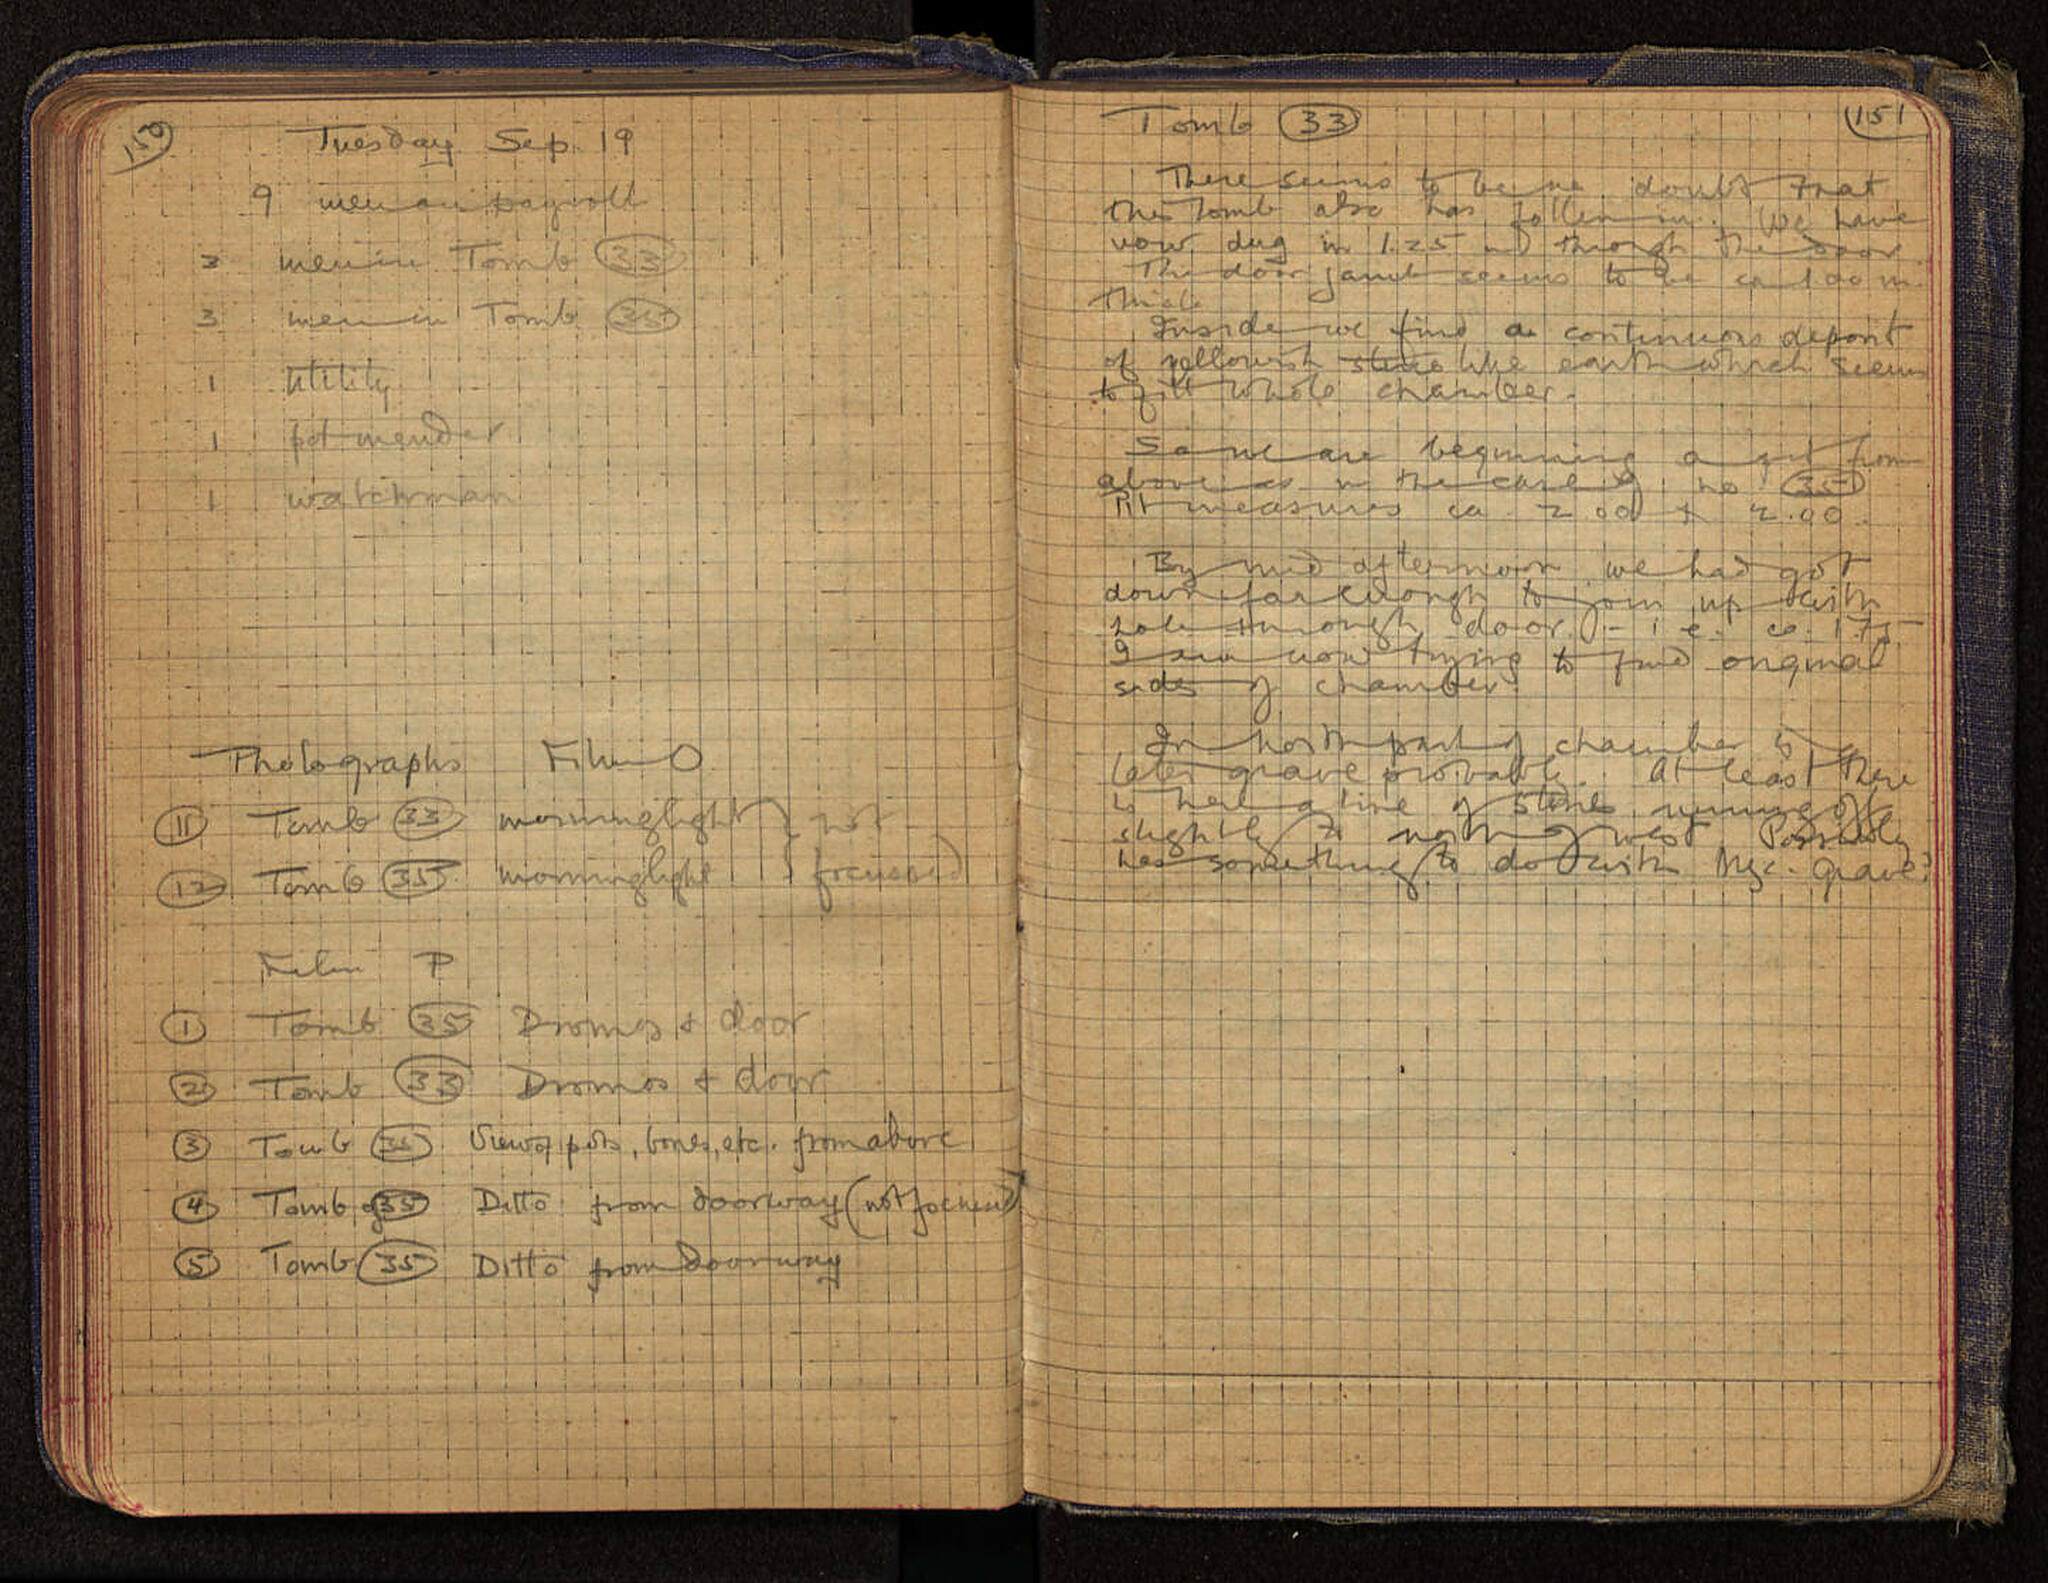 150
Tuesday Sep. 19
9 men on payroll
3 men in Tomb 33
3 men in Tomb 35
1 utility
1 pot mender
1 watchman
Photographs Film O
11 Tomb 33 morninglight } not
12 Tomb 35 morninglight } focussed
Film P
1 Tomb 35 Dromos & door
2 Tomb 33 Dromos & door
3 Tomb 35 View of pots, bones, etc. from above
4 Tomb 35 Ditto from doorway (not focused)
5 Tomb 35 Ditto from doorway
Tomb 33
151
There seems to be no doubt that
this tomb also has fallen in. We have
now dug in 1.25 m through the door
The door jamb seems to be ca 1.00 m.
thick
Inside we find a continuous deposit
of yellowish like earth which seems
to fill whole chamber.
So we are beginning a pit from
above as in the case of no 35
Pit measures ca 2.00 x 2.00.
By mid afternoon we had got
down far enough to join up with
hole through door. - i.e. ca. 1.75
I am now trying to find original
sides of chamber.
In north part of chamber is
later grave probably. At least there
is here a line of stones running off
slightly to north of west. Possibly
has something to do with Myc. grave?